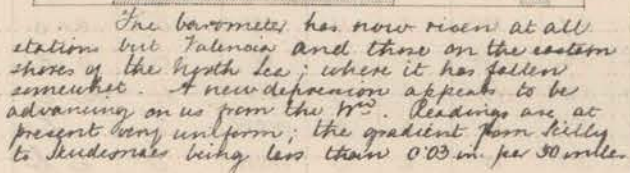 The barometer has now risen at all
stations but Valencia and those on the eastern
shores of the North Sea; where it has fallen
somewhat. A new depression appears to be
advancing on us from the Wd. Readings are at
present very uniform; the gradient from Scilly
to Skudesnaes being less than 0.03 in. per 50 miles